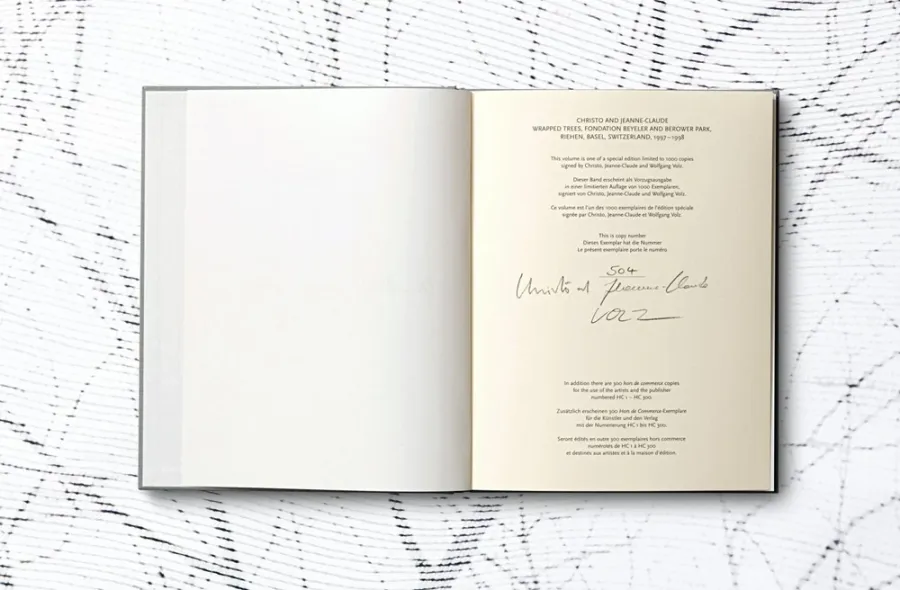 CHRISTO AND JEANNE-CLAUDE
WRAPPED TREES, FONDATION BEYELER AND BEROWER PARK,
RIEHEN, BASEL, SWITZERLAND, 1997–1998
This volume is one of a special edition limited to 1000 copies
signed by Christo, Jeanne-Claude and Wolfgang Volz.
Dieser Band erscheint als Vorzugsausgabe
in einer limitierten Auflage von 1000 Exemplaren,
signiert von Christo, Jeanne-Claude und Wolfgang Volz.
Ce volume est l'un des 1000 exemplaires de l'édition spéciale
signée par Christo, Jeanne-Claude et Wolfgang Volz.
This is copy number
Dieses Exemplar hat die Nummer
Le présent exemplaire porte le numéro
504
Christo et Jeanne-Claude
VOLZ
In addition there are 300 hors de commerce copies
for the use of the artists and the publisher
numbered HC 1 – HC 300.
Zusätzlich erscheinen 300 Hors de Commerce-Exemplare
für die Künstler und den Verlag
mit der Numerierung HC 1 bis HC 300.
Seront édités en outre 300 exemplaires hors commerce
numérotés de HC 1 à HC 300
et destinés aux artistes et à la maison d'édition.